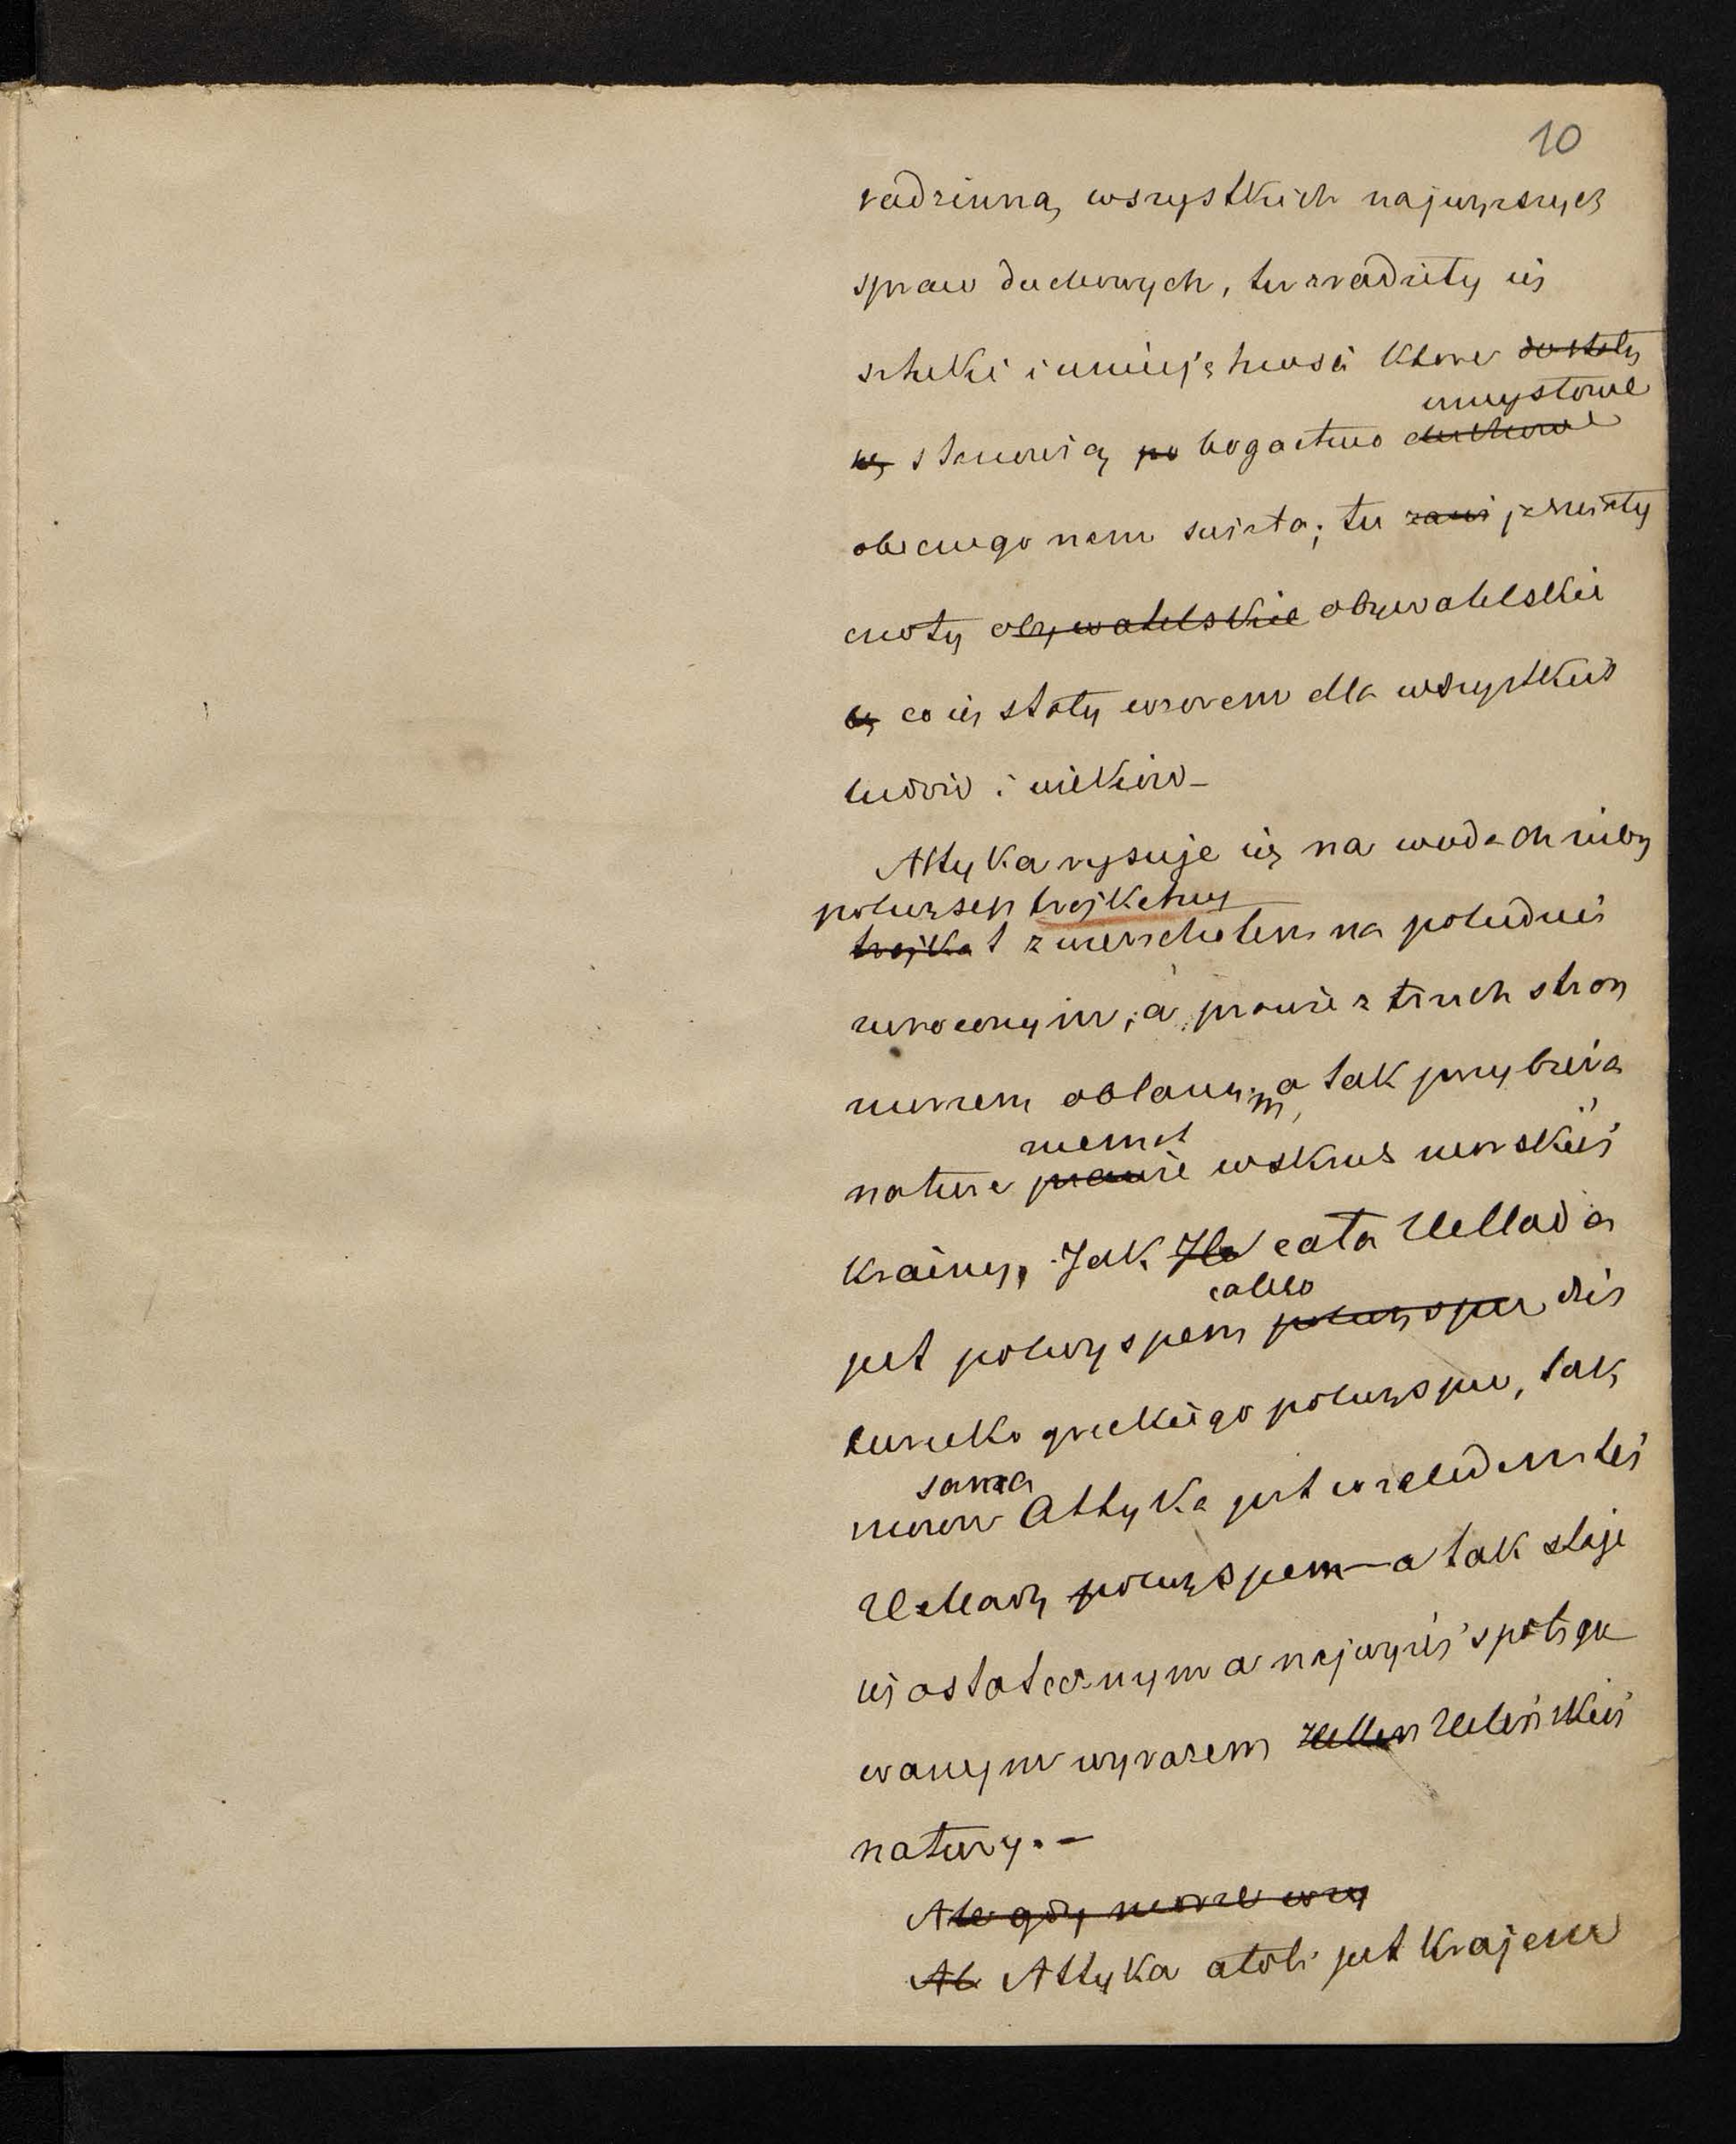 10
rodzinną wszystkich najwyższych
spraw duchowych, tu zrodziły się
sztuki i umiejętności które dostały
umysłowe
się stanowią po bogactwo duchowe
obecnego nam świata; tu zaw jaśniały
cnoty obywatelskie obywatelskie
by co się stały wzorem dla wszystkich
ludów i wieków –
Attyka rysuje się na wodach niby
półwysep trójkątny
trójkąt z wierzchołem na południe
zwróconym, a prawie z trzech stron
morzem oblanym, a tak przybiera
niemal
naturę prawie wskroś morskiej
krainy. Jak He cała Hellada
całego
jest półwyspem półwyspu dla
tureko greckiego półwyspu, tak
sama
znowu Attyka jest względem tej
Hellady półwyspem – a tak staje
się ostatecznym a najwyżej spotęgo
wanym wyrazem Hellen Heleńskiej
natury. –
Ale gdy morze wrzy
Al Attyka atoli jest krajem